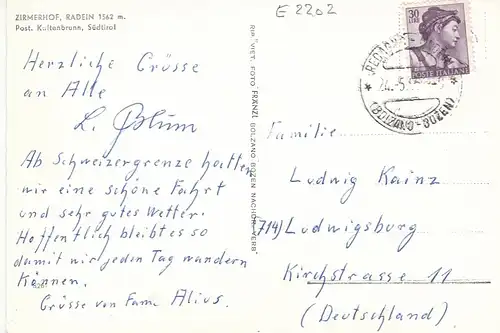 ZIRMERHOF, RADEIN 1562 m.
Post. Kaltenbrunn, Südtirol
E 2202
30
LIRE
POSTE ITALIANE
(BOLZANO - BOZEN)
Herzliche Grüsse
an Alle
L. Blüm
Ab Schweizergrenze hatten
wir eine schöne Fahrt
und sehr gutes Wetter.
Hoffentlich bleibt es so
damit wir jeden Tag wandern
können.
Grüsse von Fam. Alius.
"VET. FOTO FRÄNZL BOLZANO BOZEN NACHDR. VERB"
Familie
Ludwig Kainz
(714) Ludwigsburg
Kirchstrasse 11
(Deutschland)